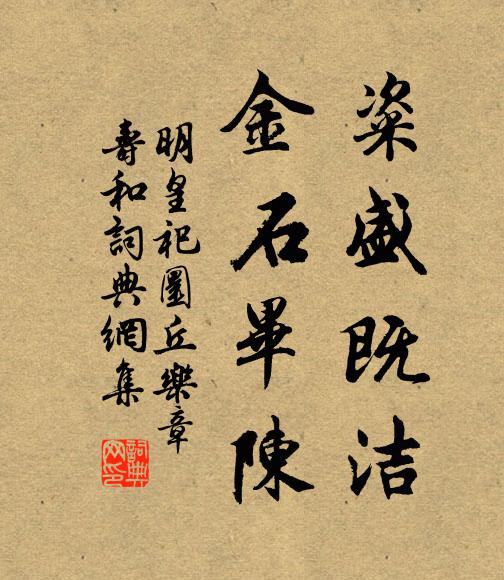 粢盛既洁
金石畢陳
明皇祀圜丘樂章
壽和詞典網集
詞典网印